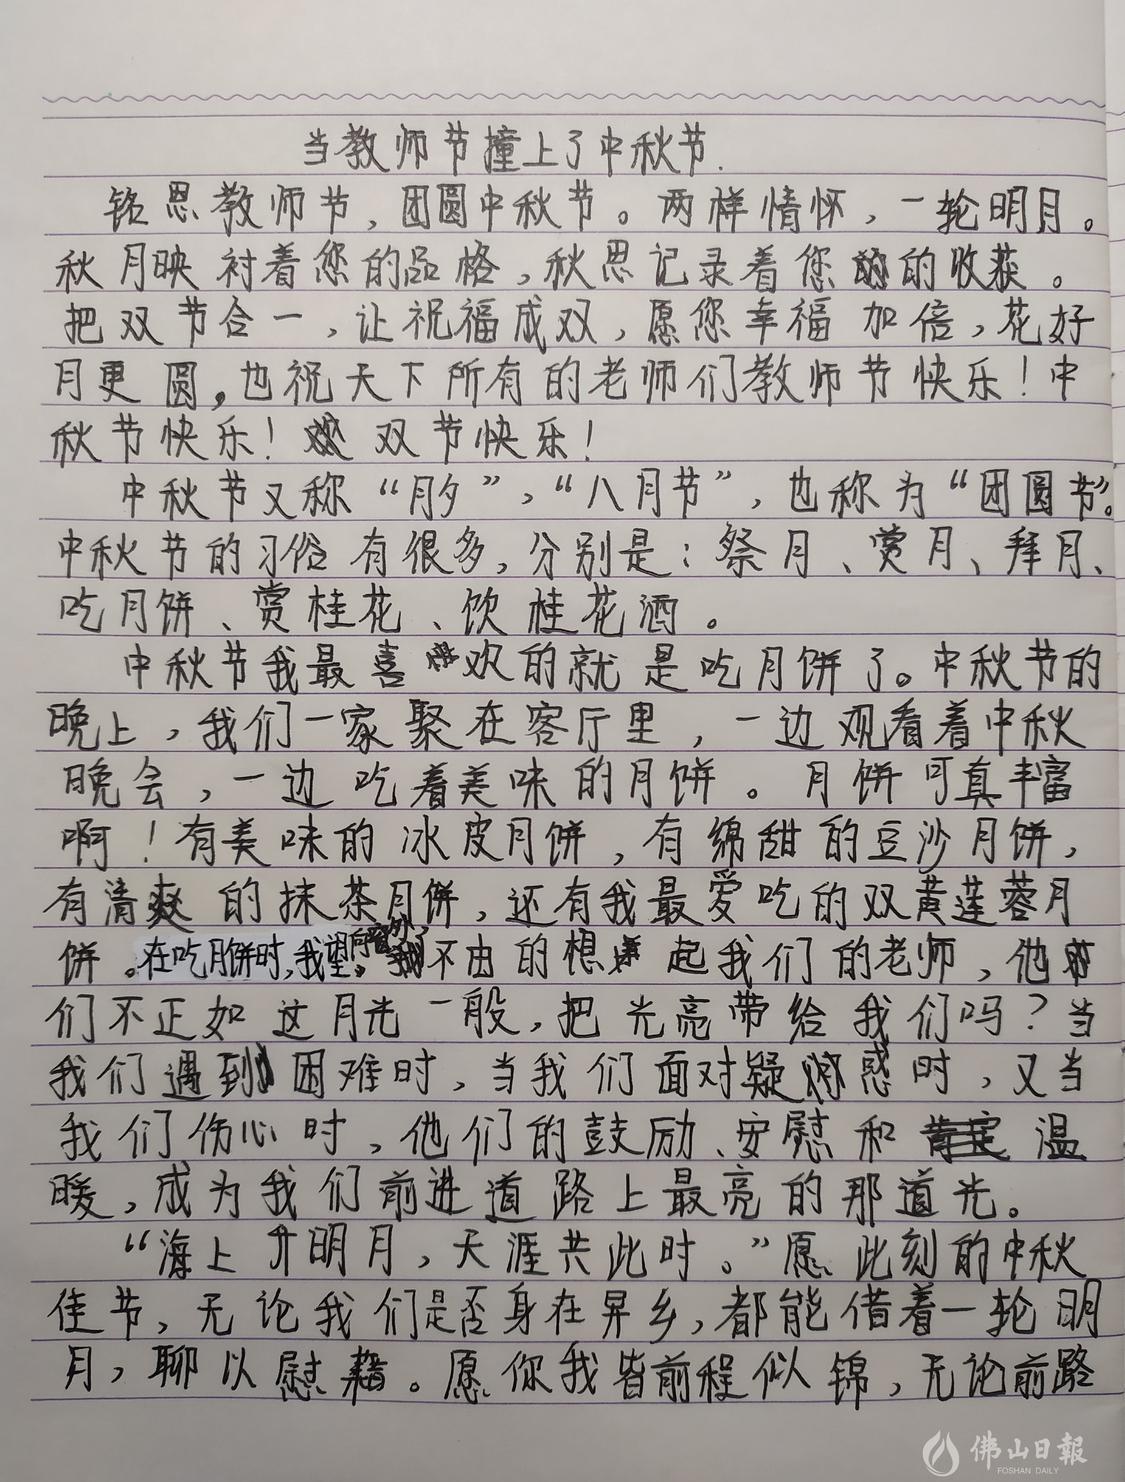 当教师节撞上了中秋节.
铭恩教师节，团圆中秋节。两样情怀，一轮明月。
秋月映衬着您的品格，秋思记录着您的收获。
把双节合一，让祝福成双，愿您幸福加倍，花好
月更圆，也祝天下所有的老师们教师节快乐！中
秋节快乐！双节快乐！
中秋节又称“月夕”，“八月节”，也称为“团圆节”。
中秋节的习俗有很多，分别是：祭月、赏月、拜月、
吃月饼、赏桂花、饮桂花酒。
中秋节我最喜欢的就是吃月饼了。中秋节的
晚上，我们一家聚在客厅里，一边观看着中秋
晚会，一边吃着美味的月饼。月饼可真丰富
啊！有美味的冰皮月饼，有绵甜的豆沙月饼，
有清爽的抹茶月饼，还有我最爱吃的双黄莲蓉月
饼。在吃月饼时，我望向窗外，不由的想起我们的老师，他
们不正如这月光一般，把光亮带给我们吗？当
我们遇到困难时，当我们面对疑惑时，又当
我们伤心时，他们的鼓励、安慰和温
暖，成为我们前进道路上最亮的那道光。
“海上升明月，天涯共此时。”愿此刻的中秋
佳节，无论我们是否身在异乡，都能借着一轮明
月，聊以慰藉。愿你我皆前程似锦，无论前路
佛山日報
FOSHAN DAILY